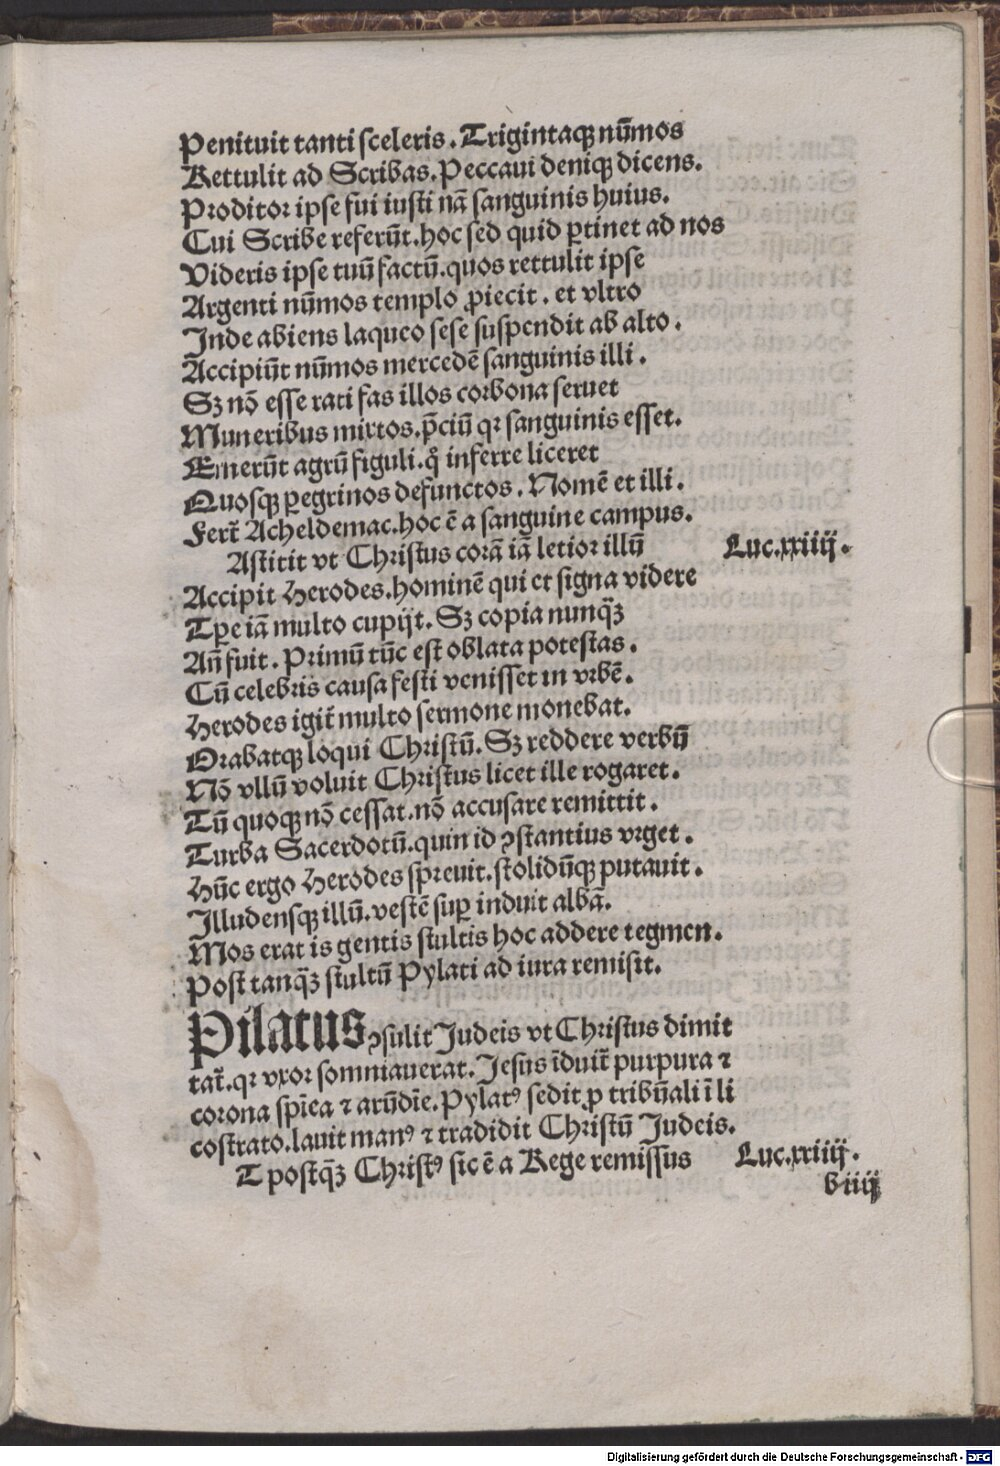 Penituit tanti sceleris. Trigintaqꝫ nūmos
Rettulit ad Scribas. Peccaui deniqꝫ dicens.
Proditor ipse fui iusti nā sanguinis huius.
Cui Scribe referūt. hoc sed quid ꝑtinet ad nos
Videris ipse tuū factū. quos rettulit ipse
Argenti nūmos templo ꝓiecit. et vltro
Inde abiens laqueo sese suspendit ab alto.
Accipiūt nūmos mercedē sanguinis illi.
Sꝫ nō esse rati fas illos corbona seruet
Muneribus mixtos. p̄ciū qꝛ sanguinis esset.
Emerūt agrū figuli. qͦ inferre liceret
Quosqꝫ ꝑegrinos defunctos. Nomē et illi.
Fert᷑ Acheldemac. hoc ē a sanguine campus.
Astitit vt Christus corā iā letior illū
Luc.xxiiij.
Accipit Herodes. hominē qui et signa videre
Tꝑe iā multo cupijt. Sꝫ copia nunqꝫ̄
An̄ fuit. Primū tūc est oblata potestas.
Cū celebris causa festi venisset in vrbē.
Herodes igit᷑ multo sermone monebat.
Orabatqꝫ loqui Christū. Sꝫ reddere verbū
Nō vllū voluit Christus licet ille rogaret.
Tū quoqꝫ nō cessat. nō accusare remittit.
Turba Sacerdotū. quin id ꝯstantius vrget.
Hūc ergo Herodes spreuit. stolidūqꝫ putauit.
Illudensqꝫ illū. vestē suꝑ induit albā.
Mos erat is gentis stultis hoc addere tegmen.
Post tanqꝫ̄ stultū Pylati ad iura remisit.
Pilatus ꝯsulit Judeis vt Christus dimit
tat᷑. qꝛ vxor somniauerat. Jesus īduit᷑ purpura ⁊
corona spīea ⁊ arūdīe. Pylatꝰ sedit ꝓ tribūali ī li
costrato. lauit manꝰ ⁊ tradidit Christū Judeis.
T postqꝫ̄ Christꝰ sic ē a Rege remissus
Luc.xxiiij.
b iiij
Digitalisierung gefördert durch die Deutsche Forschungsgemeinschaft - DFG